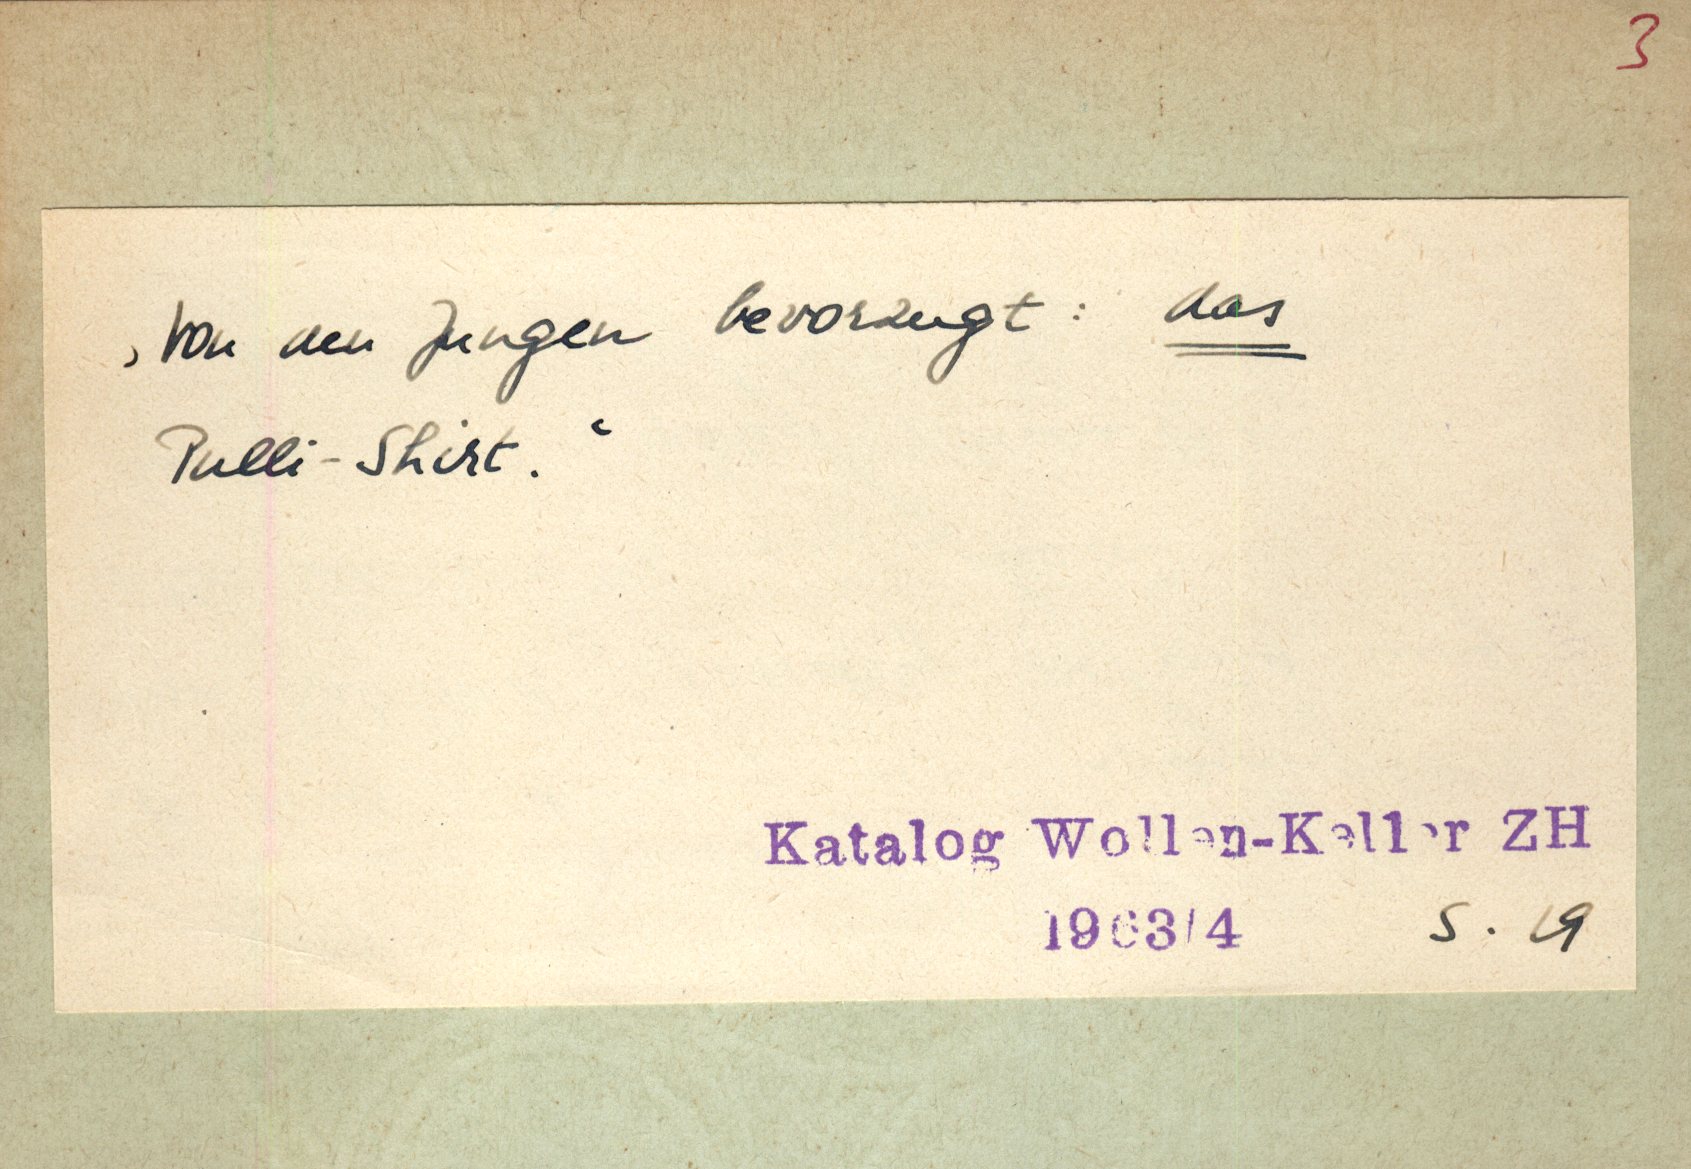 3
‚Von den Jungen bevorzugt: das
Pulli-Shirt.‘
Katalog Wollen-Keller ZH
1963/4 S. 19